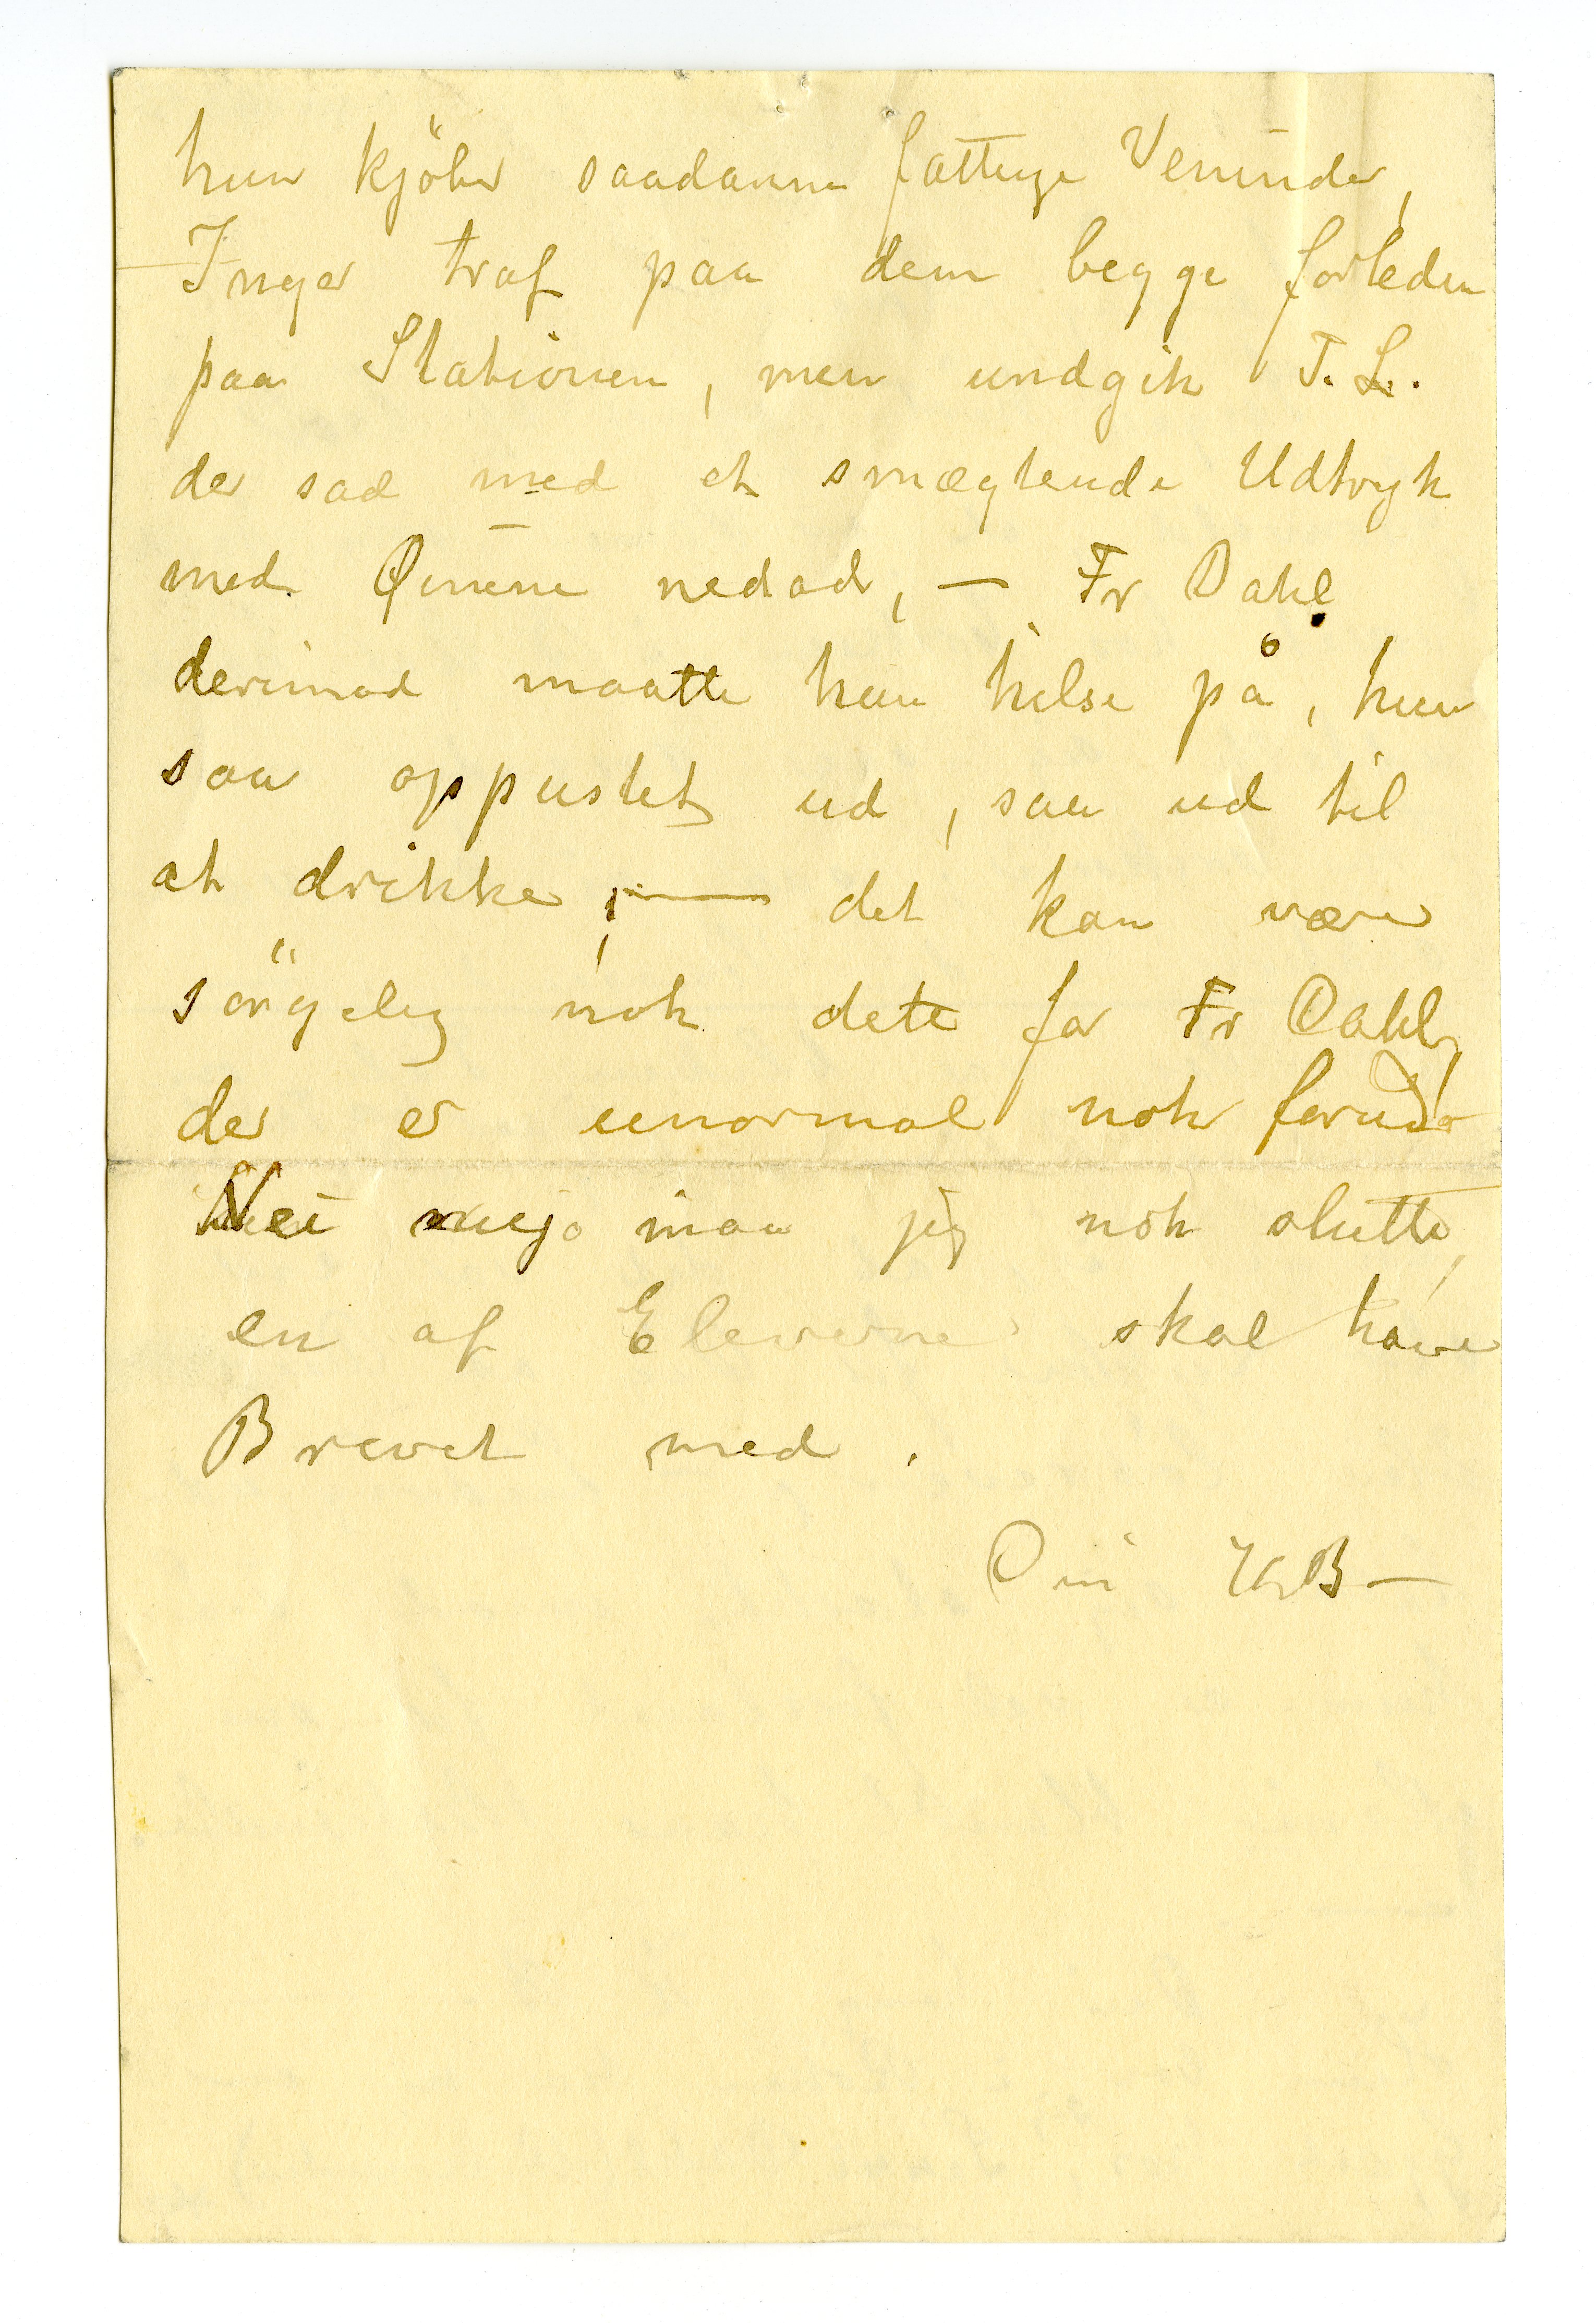 hun kjöber saadanne fattige Veninder,
Inger traf paa dem begge forleden
paa Stationen, men undgik T. L.
der sad med et smægtende Udtryk
med Øinene nedad, — Fr Dahl
derimod maatte hun hilse på, hun
saa oppustet ud, saa ud til
at drikke, — det kan være
sörgelig nok dette for Fr Dahl,
der er unormal nok forud
Nei maa jeg nok slutte,
en af Eleverne skal have
Brevet med.
Din